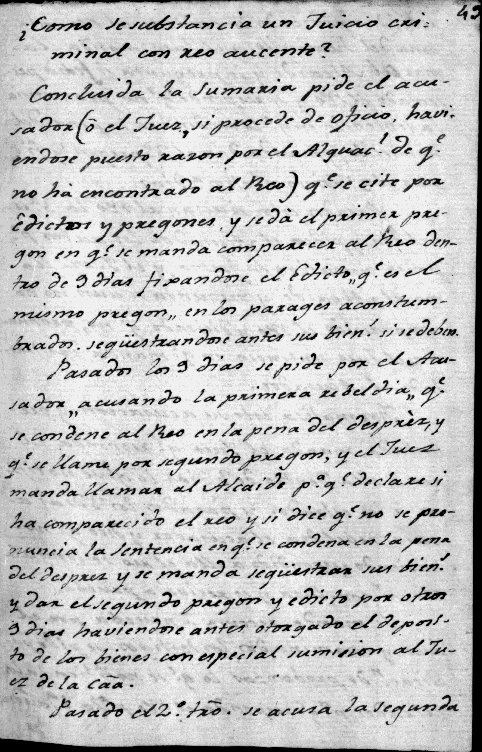 43
¿Como se substancia un Juicio cri-
minal con reo aucente?
Concluida la Sumaria pide el acu-
sador (ô el Juez, si procede de oficio, havi-
endose puesto razon por el Alguac.l de q.e
no há encontrado al Reo) q.e se cite por
Êdictos y pregones, y se dâ el primer pre-
gon en q.e se manda comparecer al Reo den-
tro de 9 dias fixandose el Edicto,, q.e es el
mismo pregon,, en los parages acostum-
brados. seqüestrandose antes sus bien.s si se deben.
Pasados los 9 dias se pide por el Acu-
sador,, acusando la primera rebeldia,, q.e
se condene al Reo en la pena del desprèz, y
q.e se llame por segundo pregon, y el Juez
manda llamar al Alcaide p.a q.e declare si
ha comparecido el reo y si dice q.e no se pro-
nuncia la Sentencia en q.e se condena en la pena
del desprez y se manda seqüestrar sus bien.s
y dar el segundo pregon y edicto por otros
9 dias haviendose antes otorgado el deposi-
to de los bienes con especial sumision al Ju-
ez de la Câa.
Pasado el 2.o trô. se acusa la segunda